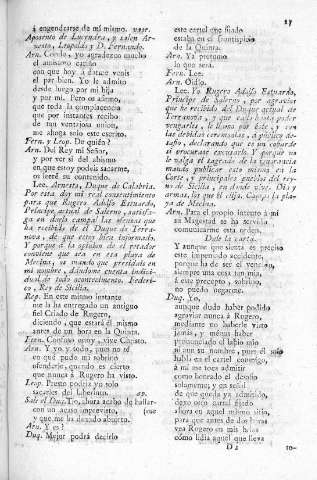 17
á engendrarse de mí mismo. vase.
Aposento de Lucrenda, y salen Ar-
nesto, Leopoldo y D. Fernando.
Arn. Conde, yo agradezco mucho
el amistoso cariño
con que hoy á darme venis
el par bien. Yo le admito
desde luego por mi hija
y por mi. Pero os afirmo,
que toda la complacencia
que por instantes recibo
de tan ventajosa union,
me ahoga solo este escrito.
Fern. y Leop. De quién?
Arn. Del Rey mi Señor,
y por ver si del abismo
en que estoy podeis sacarme,
os leeré su contenido.
Lee. Arnesto, Duque de Calabria.
Por esta doy mi real consentimiento
para que Rugero Adolfo Estuardo,
Príncipe actual de Salerno, satisfa-
ga en duelo campal las ofensas que
ha recibido de el Duque de Terra-
nova, de que estoy bien informado.
Y porque á la aptitud de el retador
conviene que sea en esa playa de
Mecina, os mando que presidais en
mi nombre, dándome cuenta indivi-
dual de todo acontecimiento. Federi-
co, Rey de Sicilia.
Rep. En este mismo instante
me la ha entregado un antiguo
fiel Criado de Rugero,
diciendo, que estará él mismo
antes de un hora en la Quinta.
Fern. Confuso estoy, vive Christo.
Arn. Y yo, y todo, pues no sé
en qué pudo mi sobrino
ofenderle, quando es cierto
que nunca á Rugero ha visto.
Leop. Presto podria yo solo
sacarles del laberinto. ap.
Sale el Duq. Tio, ahora acabo de hallar-
con un acaso imprevisto, (me
y que me ha dexado absorto.
Arn. Y es?
Duq. Mejor podrá decirlo
este cartel que fixado
estaba en el frontispicio
de la Quinta.
Arn. Ya presumo
lo que será.
Fern. Lee.
Arn. Oidlo.
Lee. Yo Rugero Adolfo Estuardo,
Príncipe de Salerno, por agravios
que he recibido del Duque actual de
Terranova, y que cuida hasta poder
vengarlos, le llamo por éste, y con
las debidas ceremonias, á público de-
safio, declarando que es un cobarde
si procurase excusarlo. Y porque no
le valga el sagrado de la ignorancia
mando publicar esto mismo en la
Corte, y principales pueblos del rey-
no de Sicilia, en donde vive. Dia y
armas, las que él elija. Campo la pla-
ya de Mecina.
Arn. Para el propio intento á mi
su Magestad se ha servido
comunicarme esta orden.
Dale la carta.
Y aunque que sienta es preciso
este impensado accidente,
porque ha de ser el vencido,
siempre una cosa tan mia,
á este precepto, sobrino,
no puedo negarme.
Duq. Yo,
aunque dudo haber podido
agraviar nunca á Rugero,
mediante no haberle visto
jamás, y menos haber
pronunciado el labio mio
ni aun su nombre, pues él solo
habla en el cartel conmigo,
á mí me toca admitir
como honrado el desafio
solamente; y en señal
de que queda ya admitido,
dexo otro cartel fixado
ahora en aquel mismo sitio,
para que antes de dos horas
vea Rugero en mis brios
cómo lidia aquel que lleva
D 2
no-